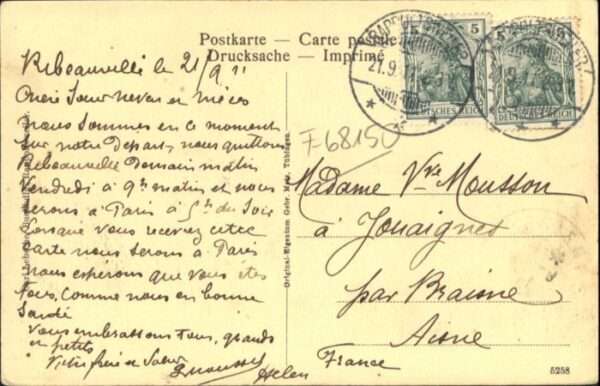 Postkarte — Carte postale
Drucksache — Imprimé
5 5
DEUTSCHES REICH
DEUTSCHES REICH
21.9.
F68150
Ribeauvillé le 21/9 11
Chère Sœur neveu et nièces
nous sommes en ce moment
sur notre Depart, nous quittons
Ribeauvillé Demain matin
Vendredi à 9h matin et nous
serons à Paris à 5h du Soir
Lorsque vous recevrez cette
carte nous serons à Paris
nous espérons que vous êtes
Tous, comme nous en bonne
Santé
Vous embrassons Tous, grands
et petits
Votre frère et Sœur
Helen
Original-Eigentum Gebr. Metz, Tübingen.
Madame Vve Mousson
à Jouaignes
par Braisne
Aisne
France
5258